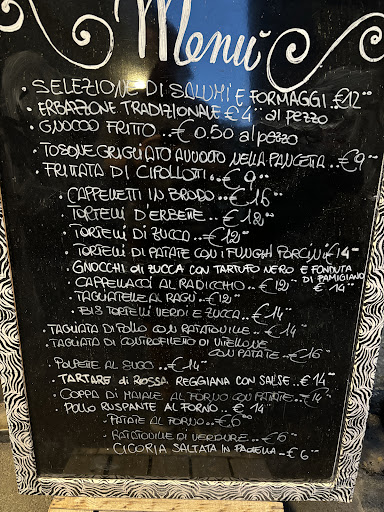 Menù
• SELEZIONE DI SALUMI E FORMAGGI.. €12.°°
• ERBAZZONE TRADIZIONALE €4.°° al pezzo
• GNOCCO FRITTO .. €0.50 al pezzo
• TOSONE GRIGLIATO AVVOLTO NELLA PANCETTA..€9.°°
• FRITTATA DI CIPOLLOTTI..€9.°°
• CAPPELLETTI IN BRODO..€16.°°
• TORTELLI D'ERBETTE..€12.°°
• TORTELLI DI ZUCCA..€12.°°
• TORTELLI DI PATATE CON I FUNGHI PORCINI €14.°°
• GNOCCHI di ZUCCA CON TARTUFO NERO E FONDUTA
DI PARMIGIANO
€14.°°
• CAPPELLACCI AL RADICCHIO..€12.°°
• TAGLIATELLE AL RAGÙ..€12.°°
• BIS TORTELLI VERDI E ZUCCA..€14.°°
• TAGLIATA DI POLLO CON RATATOUILLE..€14.°°
• TAGLIATA DI CONTROFILETTO DI VITELLONE
CON PATATE..€16.°°
• POLPETTE AL SUGO..€14.°°
• TARTARE di ROSSA REGGIANA CON SALSE..€14.°°
• COPPA DI MAIALE AL FORNO CON PATATE..€14.°°
• POLLO RUSPANTE AL FORNO..€14.°°
• PATATE AL FORNO..€6.°°
• RATATOUILLE DI VERDURE..€6.°°
• CICORIA SALTATA IN PADELLA..€6.°°